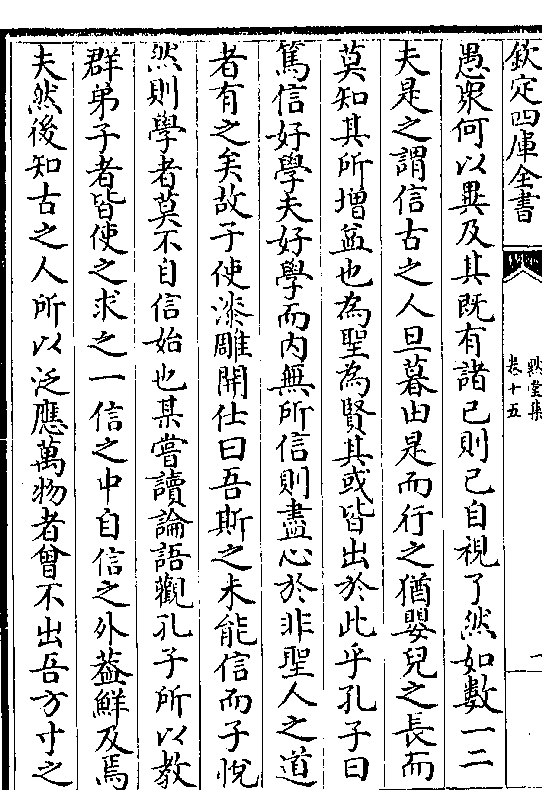 欽定四庫全書
默堂集
卷十五
愚衆何以異及其既有諸已則已自視了然如數一二
夫是之謂信古之人旦暮由是而行之猶嬰兒之長而
莫知其所增益也為聖為賢其或皆出於此乎孔子曰
篤信好學夫好學而内無所信則盡心於非聖人之道
者有之矣故子使漆雕開仕曰吾斯之未能信而子悅
然則學者莫不自信始也某嘗讀論語觀孔子所以教
群弟子者皆使之求之一信之中自信之外蓋鮮及焉
夫然後知古之人所以泛應萬物者曾不出吾方寸之